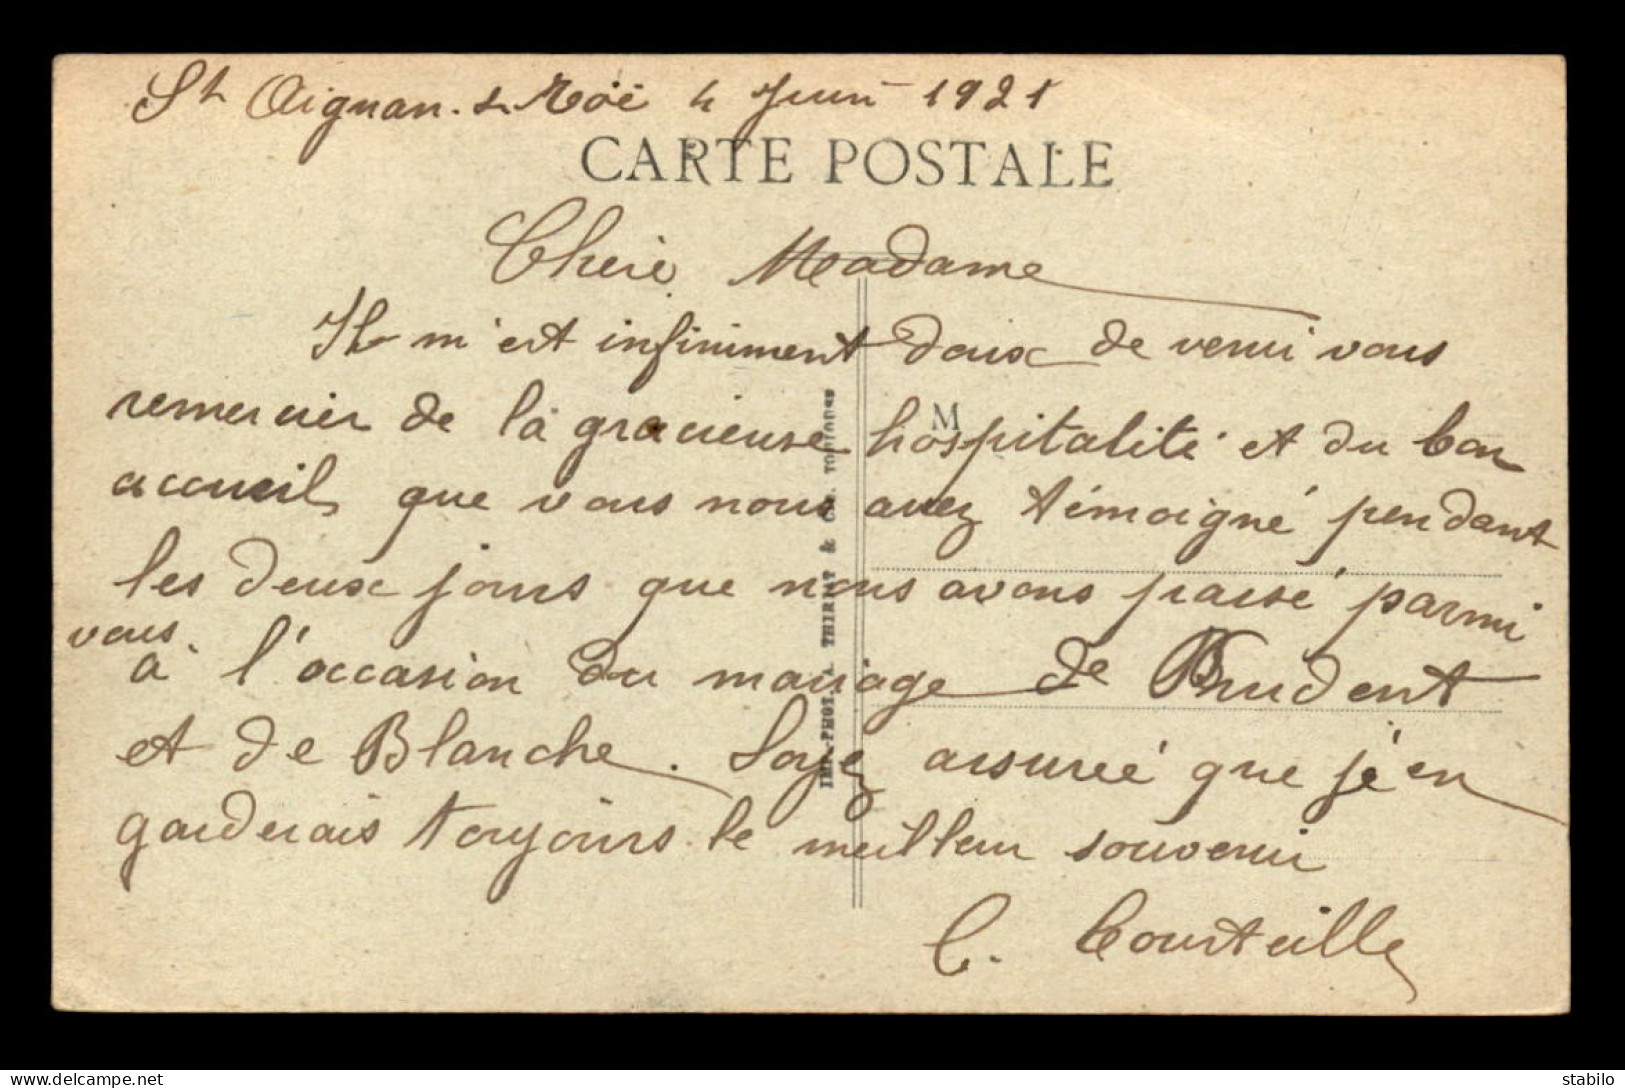 St Aignan s Röe 4 Juin 1921
CARTE POSTALE
Chère Madame
Il m'est infiniment doux de venir vous
remercier de la gracieuse hospitalité et du bon
accueil que vous nous avez témoigné pendant
les deux jours que nous avons passé parmi
vous.
à l'occasion du mariage de Prudent
et de Blanche. Soyez assurée que j'en
garderais toujours le meilleur souvenir
C. Courteille
M
IMP.-PHOT. A. THIRIAT & Cie. TOULOUSE
delcampe.net
stabilo